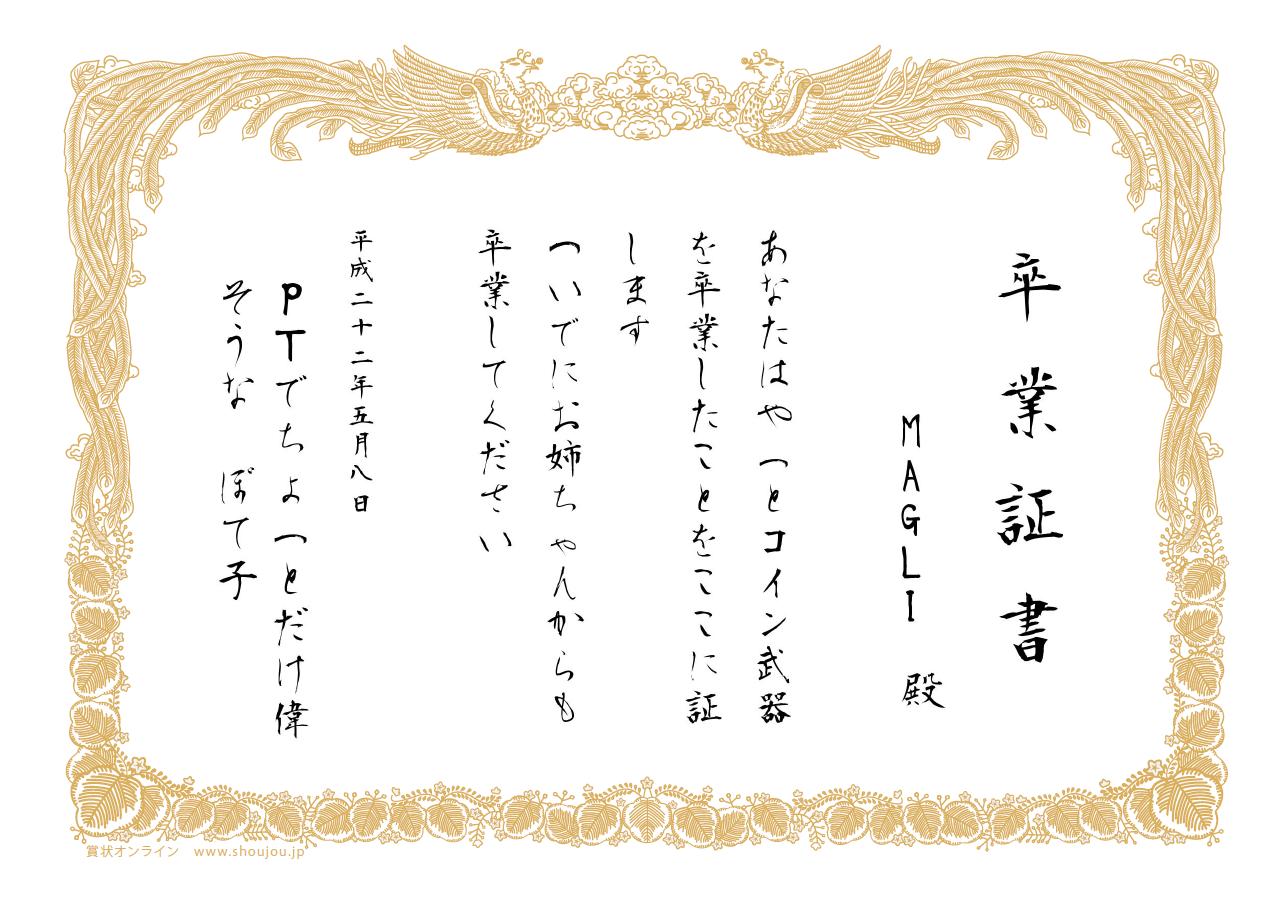 卒業証書
MAGLI 殿
あなたはやっとコイン武器
を卒業したことをここに証
します
ついでにお姉ちゃんからも
卒業してください
平成二十二年五月八日
PTでちょっとだけ偉
そうな ぼて子
賞状オンライン www.shoujou.jp